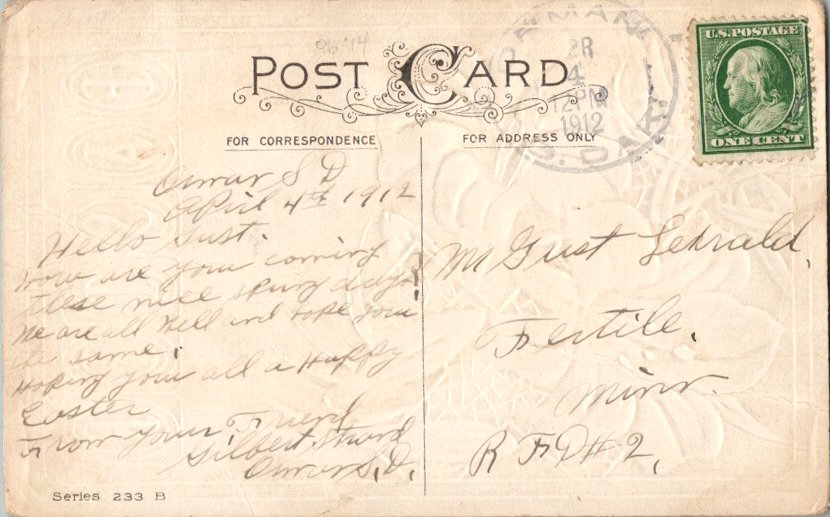 POST CARD
FOR CORRESPONDENCE
FOR ADDRESS ONLY
4
1912
S. DAK.
U.S. POSTAGE
ONE CENT
S D
April 4th 1912
Hello Gust.
How are you coming
these nice spring days
We are all Well and hope you
the same.
Hoping you all a Happy
Easter
From your Friend
Gilbert
S.D.
Mr Gust
Fertile,
Minn.
R F D # 2,
Series 233 B